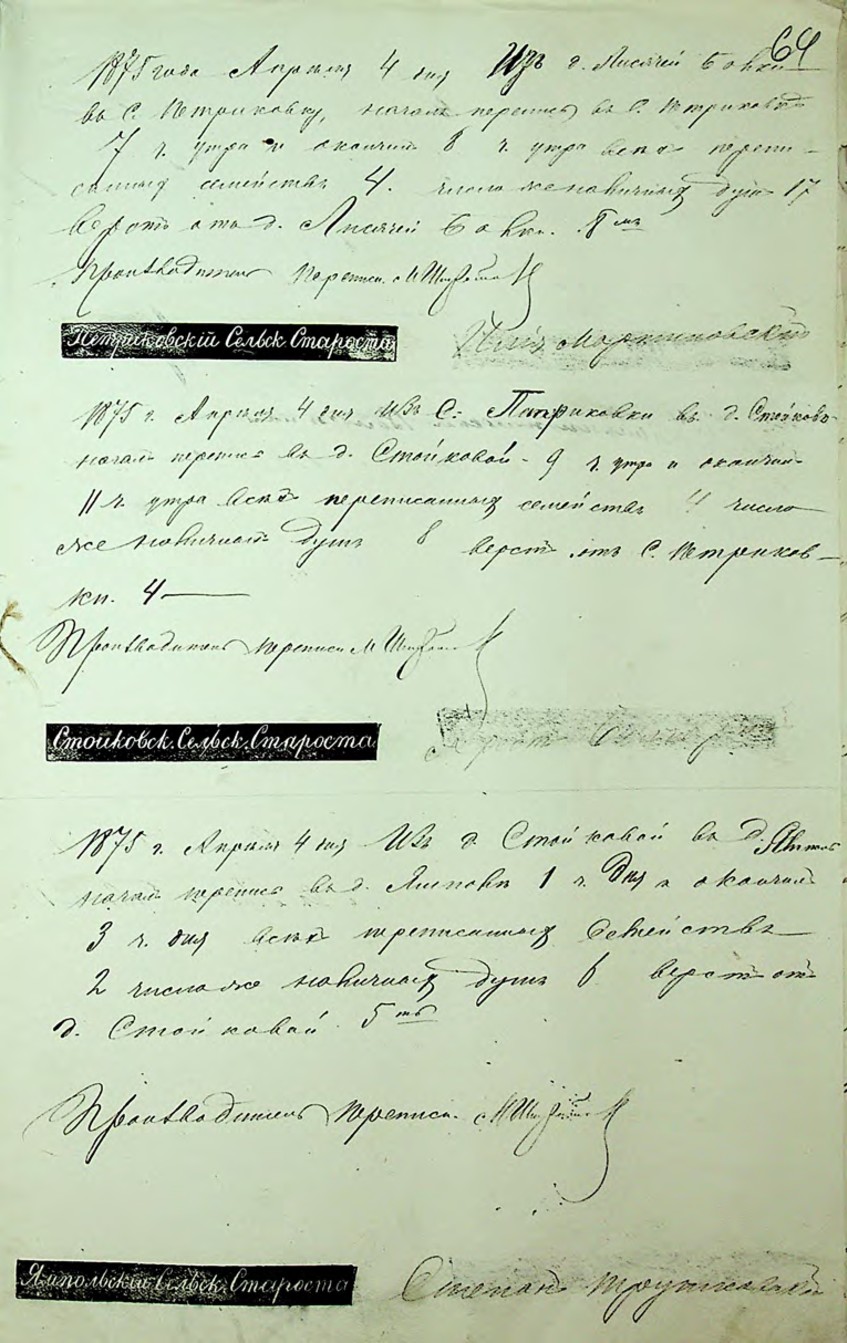 64
1875 года Апреля 4 дня Изъ д. Лисичей
въ С. Петриковку, началъ перепись въ С. Петриковкѣ
7 ч. утра и окончилъ 8 ч. утра всѣхъ перепи-
санныхъ семействъ 4. число же наличныхъ душъ 17
верстъ отъ д. Лисичей
Производитель переписи М
Петриковскій Сельск Староста
Мартиновскій
1875 г. Апреля 4 дня Изъ С. Петриковки въ д. Стойково-
началъ перепись въ д. Стойковой 9 ч. утра и окончилъ
11 ч. утра всѣхъ переписанныхъ семействъ 4 число
же наличныхъ душъ 8 верстъ отъ С. Петриков-
ки. 4
Производитель переписи М
Стойковск. Сельск. Староста
1875 г. Апреля 4 дня Изъ д. Стойковой въ д.
началъ перепись въ д. 1 ч. дня и окончилъ
3 ч. дня всѣхъ переписанныхъ Семействъ
2 число же наличныхъ душъ 6 верстъ отъ
д. Стойковой 5ть
Производитель переписи. М
Ямпольскій Сельск. Староста
Степанъ